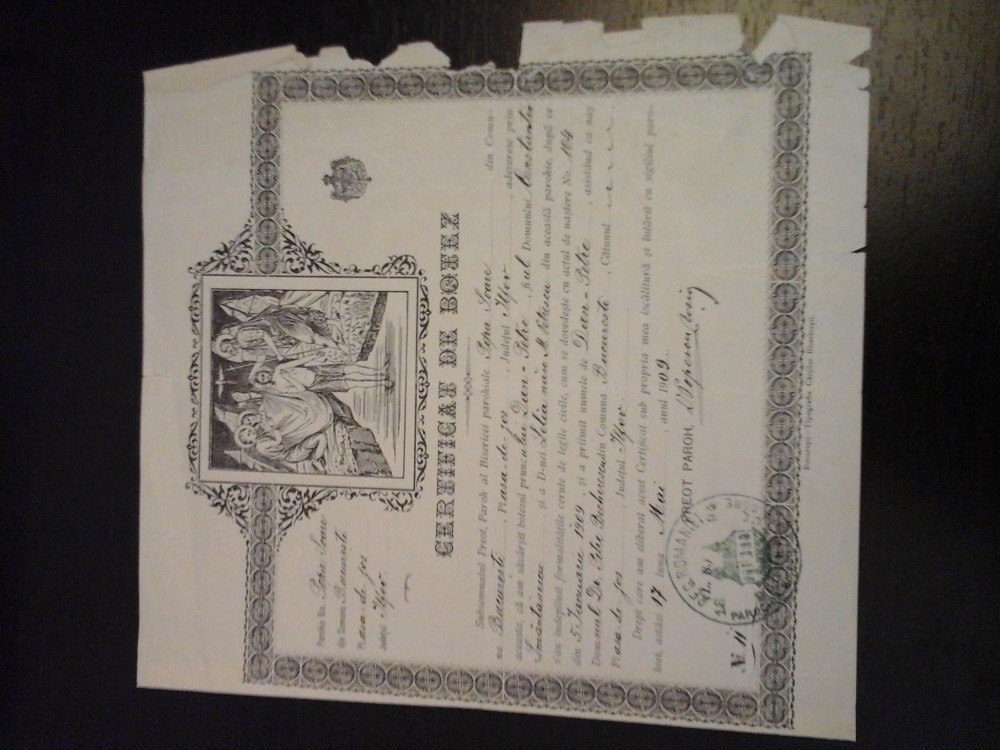 Parohia Bis. Popa Soare
din Comuna Bucuresti
Plasa de jos
Județul Ilfov
CERTIFICAT DE BOTEZ
Subsemnatul Preot, Paroh al Bisericei parohiale Popa Soare din Comu-
na Bucuresti, Plasa de jos, Județul Ilfov, adeveresc prin
aceasta, că am săvârșit botezul pruncului Dan-Petre, fiul Domnului Constantin
și a D-nei Lelia născ. M. Petrescu din această parohie, după ce
s'au îndeplinit formalitățile cerute de legile civile, cum se dovedește cu actul de naștere No. 104
din 5 Ianuarie 1909, și a priimit numele de Dan-Petre, asistând ca naș
Domnul Dr. Petre din Comuna Bucuresti, Cătunul
Plasa de jos, Județul Ilfov.
Drept care am eliberat acest Certificat sub propria mea iscălitură și întărit cu sigiliul paro-
hiei, astăzi 17 luna Mai, anul 1909.
PREOT PAROH,
№ 11
București.—Tipografia Cărților Bisericești.